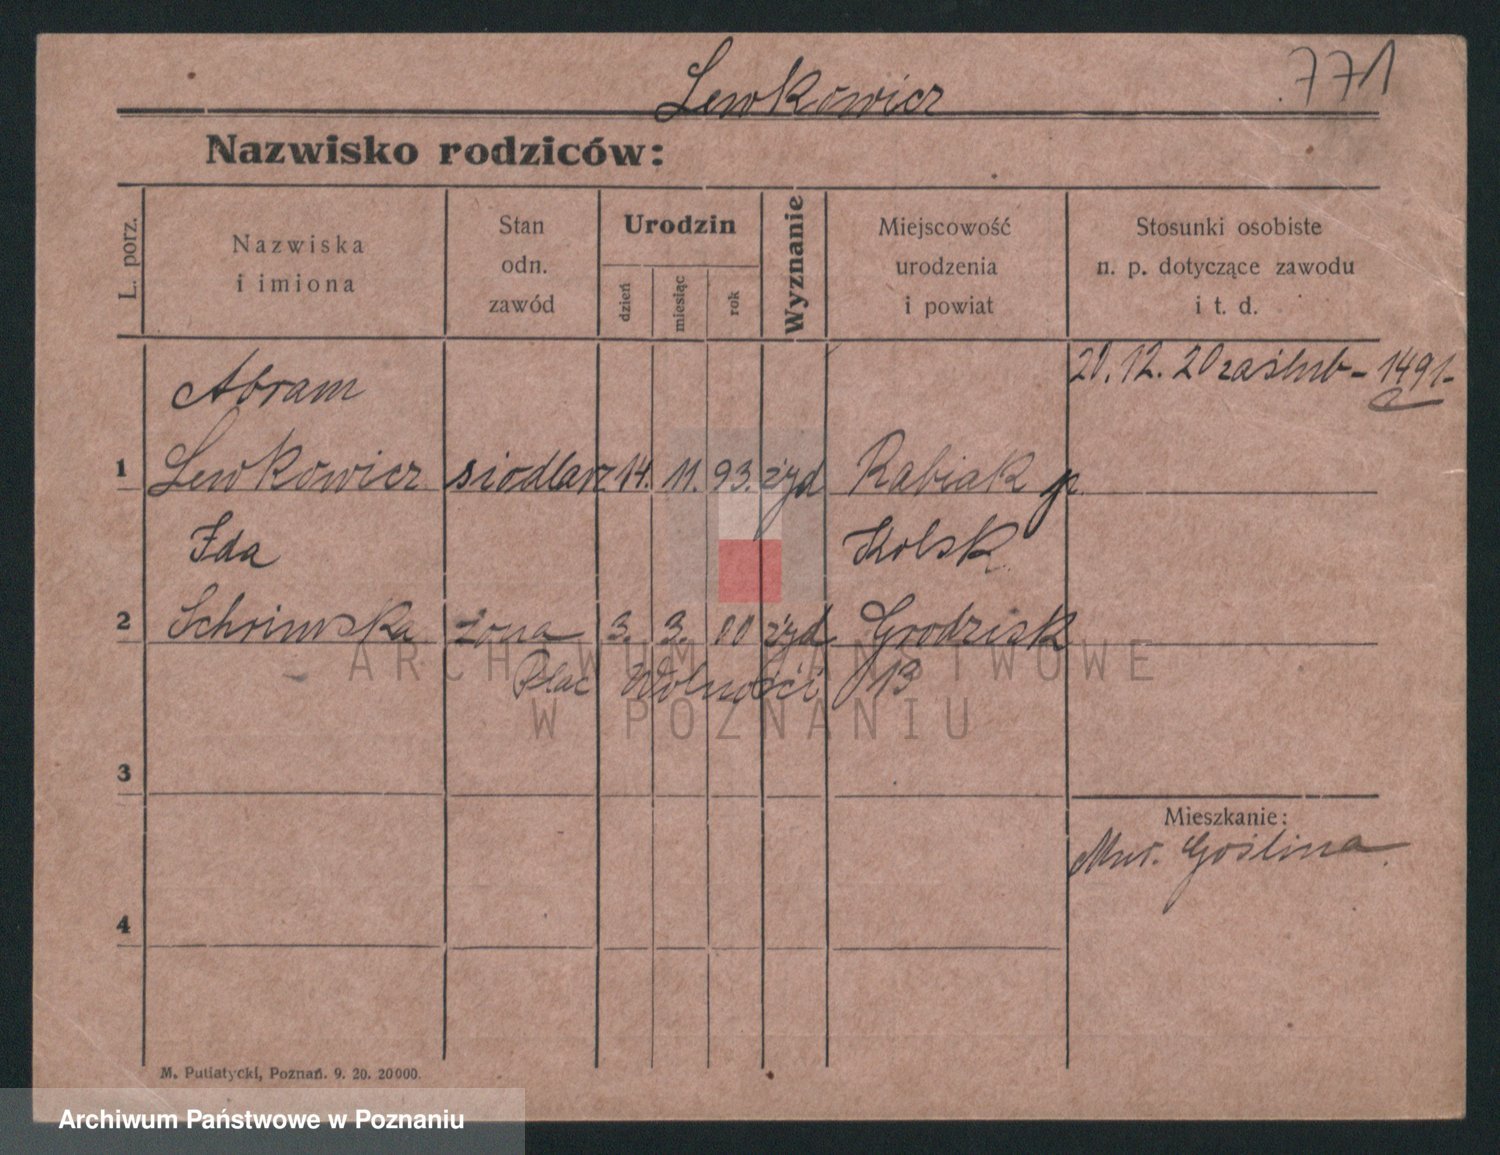 Lewkowicz
771
Nazwisko rodziców:
L. porz.
Nazwiska
i imiona
Stan
odn.
zawód
Urodzin
dzień
miesiąc
rok
Wyznanie
Miejscowość
urodzenia
i powiat
Stosunki osobiste
n. p. dotyczące zawodu
i t. d.
20.12.20 zaślub - 1491-
Abram
1 Lewkowicz siodlarz 14. 11. 93. żyd Rabiak p.
Ida Kolsk
2 Schrimska żona 3. 3. 00 żyd Grodzisk
Plac Wolności 13
ARCHIWUM PAŃSTWOWE
W POZNANIU
3
Mieszkanie:
Mur. Goślina.
4
M. Putiatycki, Poznań. 9. 20. 20000.
Archiwum Państwowe w Poznaniu